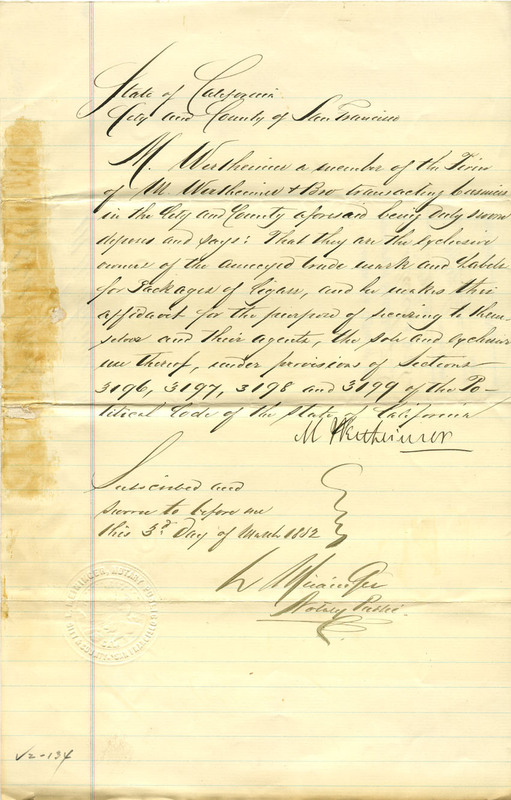 State of California
City and County of San Francisco
M. Wertheimer a member of the Firm
of M. Wertheimer & Bro transacting business
in the City and County aforesaid being duly sworn
deposes and says: That they are the exclusive
owners of the annexed trade mark and Labels
for Packages of Cigars, and he makes this
affidavit for the purpose of securing to them-
selves and their agents, the sole and exclusive
use thereof, under provisions of Sections
3196, 3197, 3198 and 3199 of the Po-
litical Code of the State of California
M Wertheimer
Subscribed and
sworn to before me
this 3d Day of March 1882
Notary Public
NOTARY PUBLIC